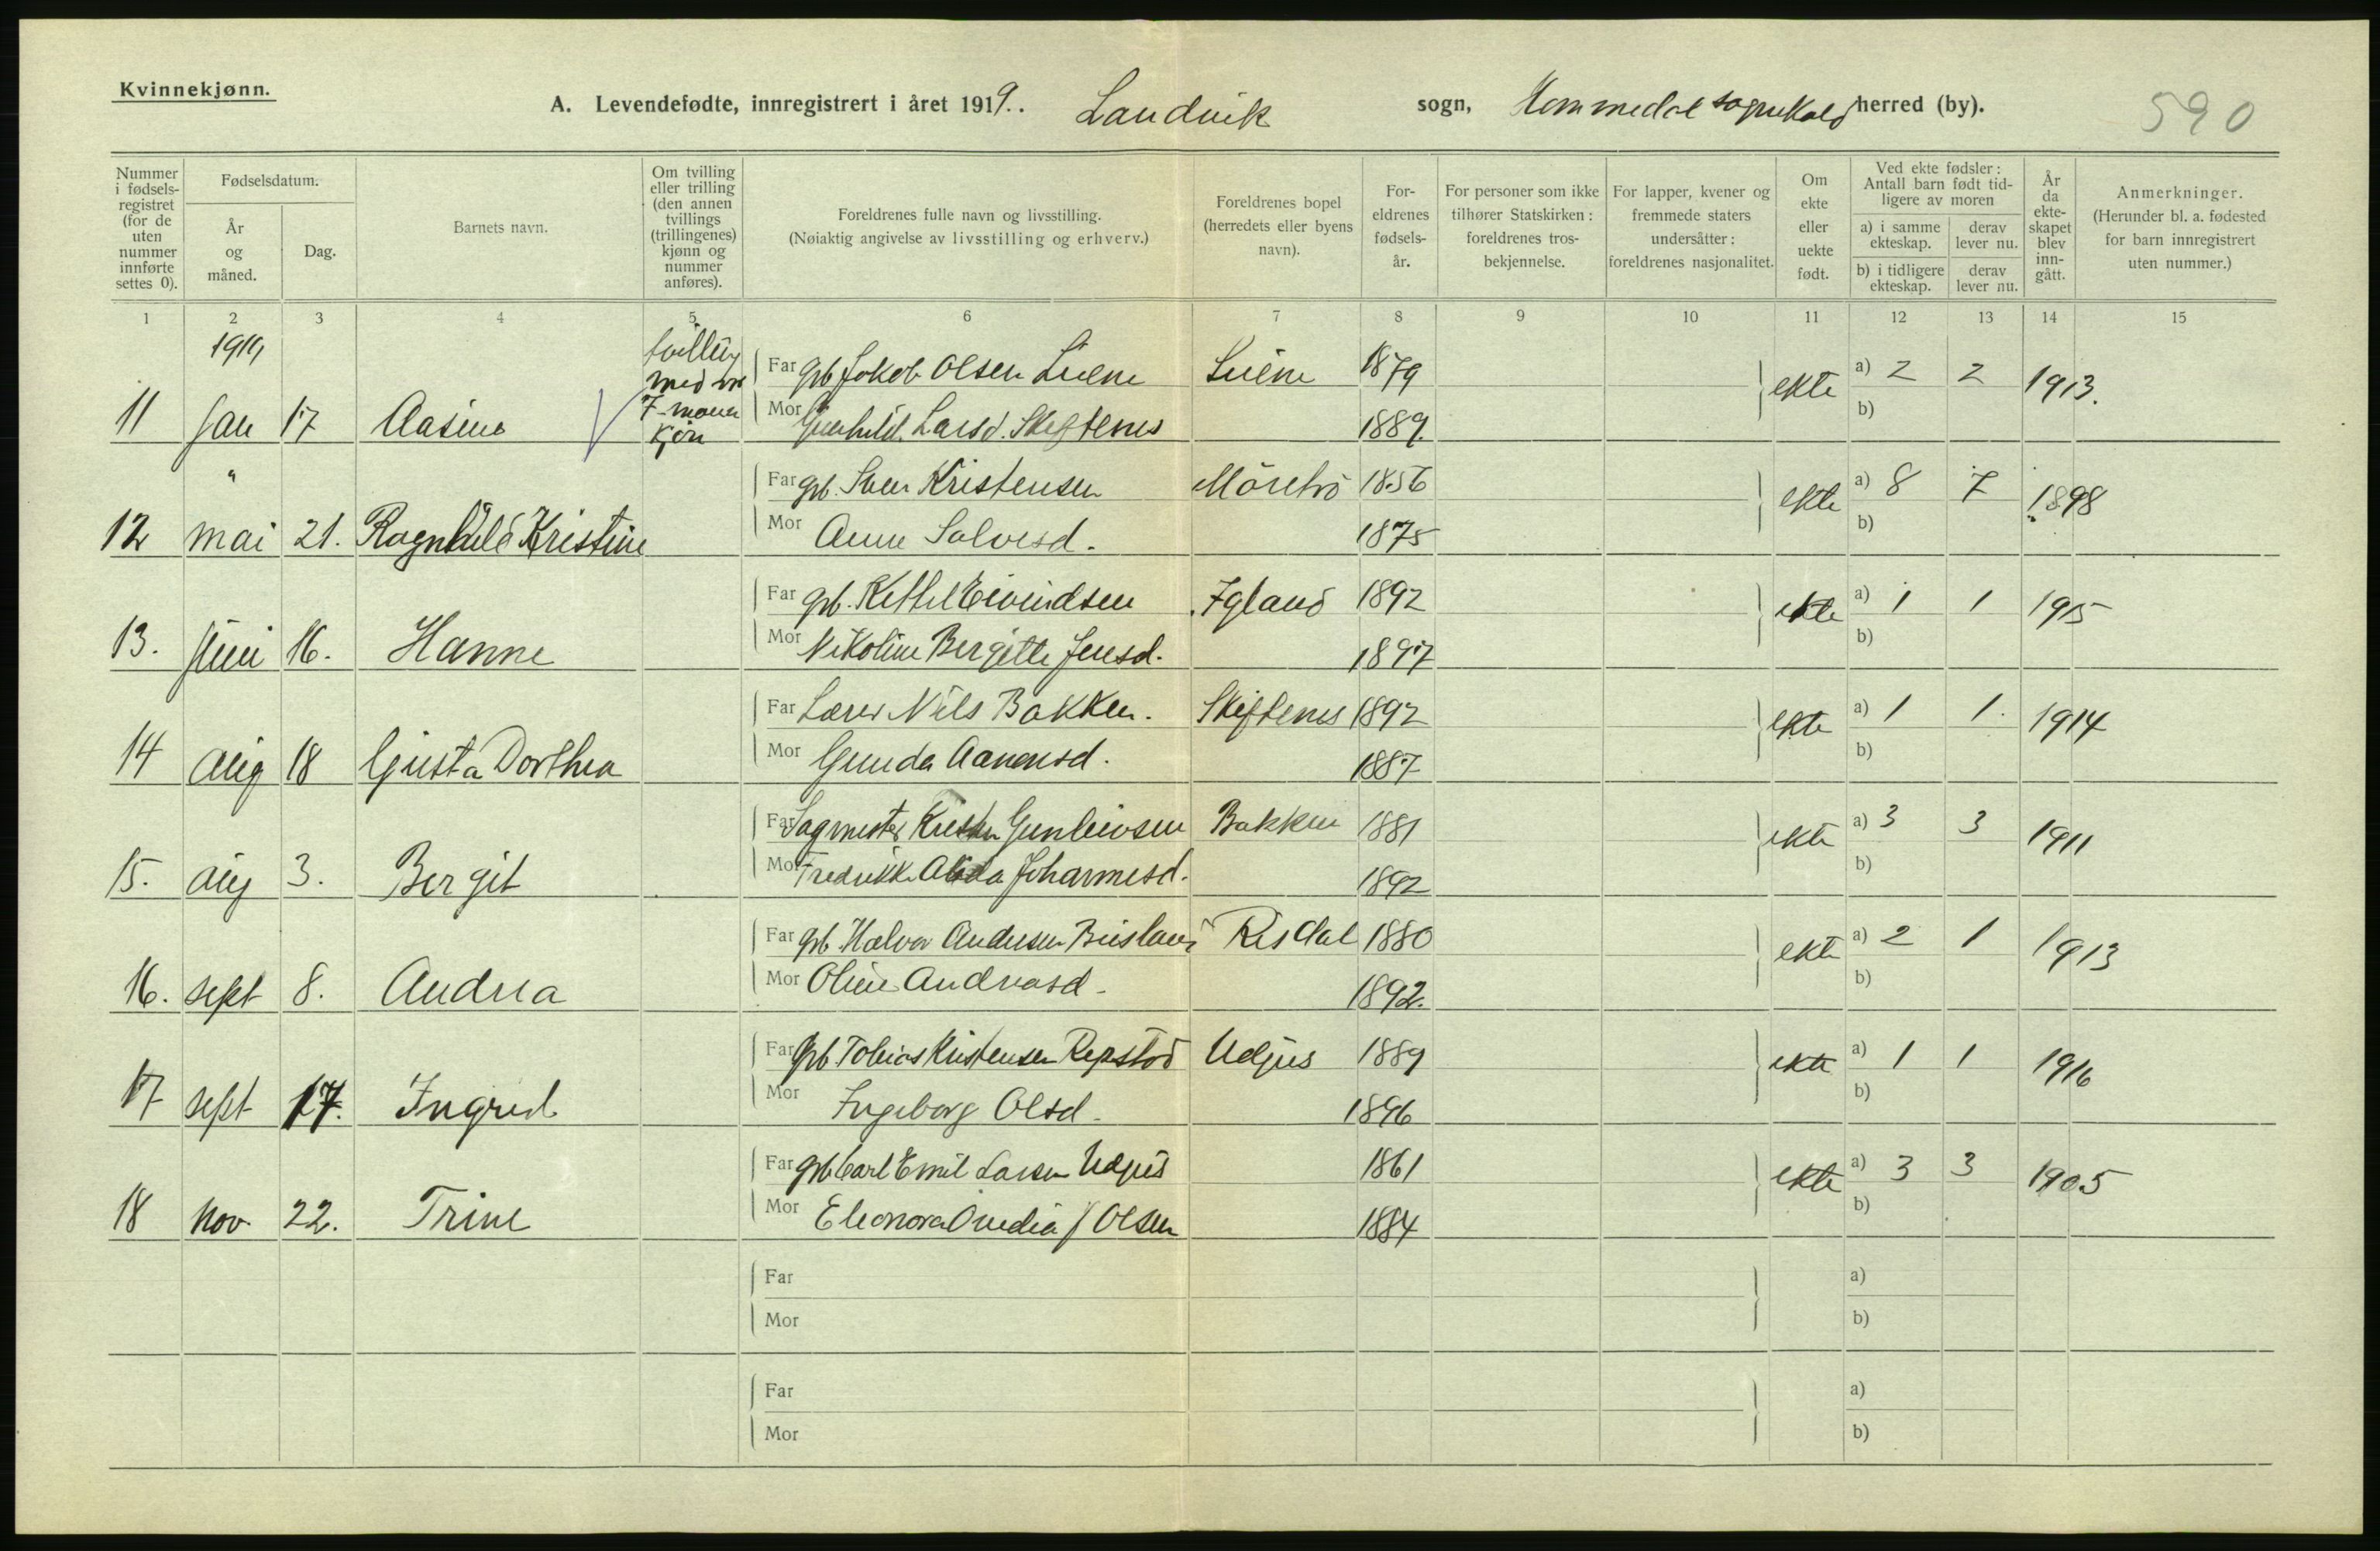 Kvinnekjønn.
A. Levendefødte, innregistrert i året 1919. Landvik sogn, Hommedal sognekald herred (by). 590
Nummer i fødselsregistret (for de uten nummer innførte settes 0).
Fødselsdatum.
År og måned.
Dag.
Barnets navn.
Om tvilling eller trilling (den annen tvillings (trillingenes) kjønn og nummer anføres).
Foreldrenes fulle navn og livsstilling. (Nøiaktig angivelse av livsstilling og erhverv.)
Foreldrenes bopel (herredets eller byens navn).
Foreldrenes fødselsår.
For personer som ikke tilhører Statskirken: foreldrenes trosbekjennelse.
For lapper, kvener og fremmede staters undersåtter: foreldrenes nasjonalitet.
Om ekte eller uekte født.
Ved ekte fødsler: Antall barn født tidligere av moren
a) i samme ekteskap.
derav lever nu.
b) i tidligere ekteskap.
derav lever nu.
År da ekteskapet blev inngått.
Anmerkninger. (Herunder bl. a. fødested for barn innregistrert uten nummer.)
1 2 3 4 5 6 7 8 9 10 11 12 13 14 15
1919
tvilling med nr 7 mann kjön
Far grb Jakob Olsen Liene Liene 1879 ekte a) 2 2 1913.
11 Jan 17 Aasine Mor Gunhild Larsd. Skiftenes 1889. b)
" Far grb. Sven Kristensen 1856 ekte a) 8 7 1898
12 mai 21. Ragnhild Kristine Mor Anne Salvesd. 1875 b)
Far grb. Kittel Eivindsen Igland 1892 ekte a) 1 1 1915
13. Juni 16. Hanne Mor Nikoline Bergitte Jensd. 1897 b)
Far Lærer Nils Bakken. Skiftenes 1892 ekte a) 1 1. 1914
14 aug 18 Gusta Dorthea Mor Gunda Aanensd. 1887 b)
Far Sagmester Gunleivsen Bakken 1881 ekte a) 3 3 1911
15. aug 3. Bergit Mor Fredrikke Alida Johannesd. 1892 b)
Far grb Halvor Andersen Risdal 1880 ekte a) 2 1 1913
16. sept 8. Andrea Mor Oline Andreasd. 1892. b)
Far grb Tobias Kristensen Repstad Udjus 1889 ekte a) 1 1 1916
17 sept 17. Ingrid Mor Ingeborg Olsd. 1896 b)
Far grb Carl Emil Larsen Udjus 1861 ekte a) 3 3 1905
18 nov. 22. Trine Mor Eleonora J Olsen 1884 b)
Far a)
Mor b)
Far a)
Mor b)